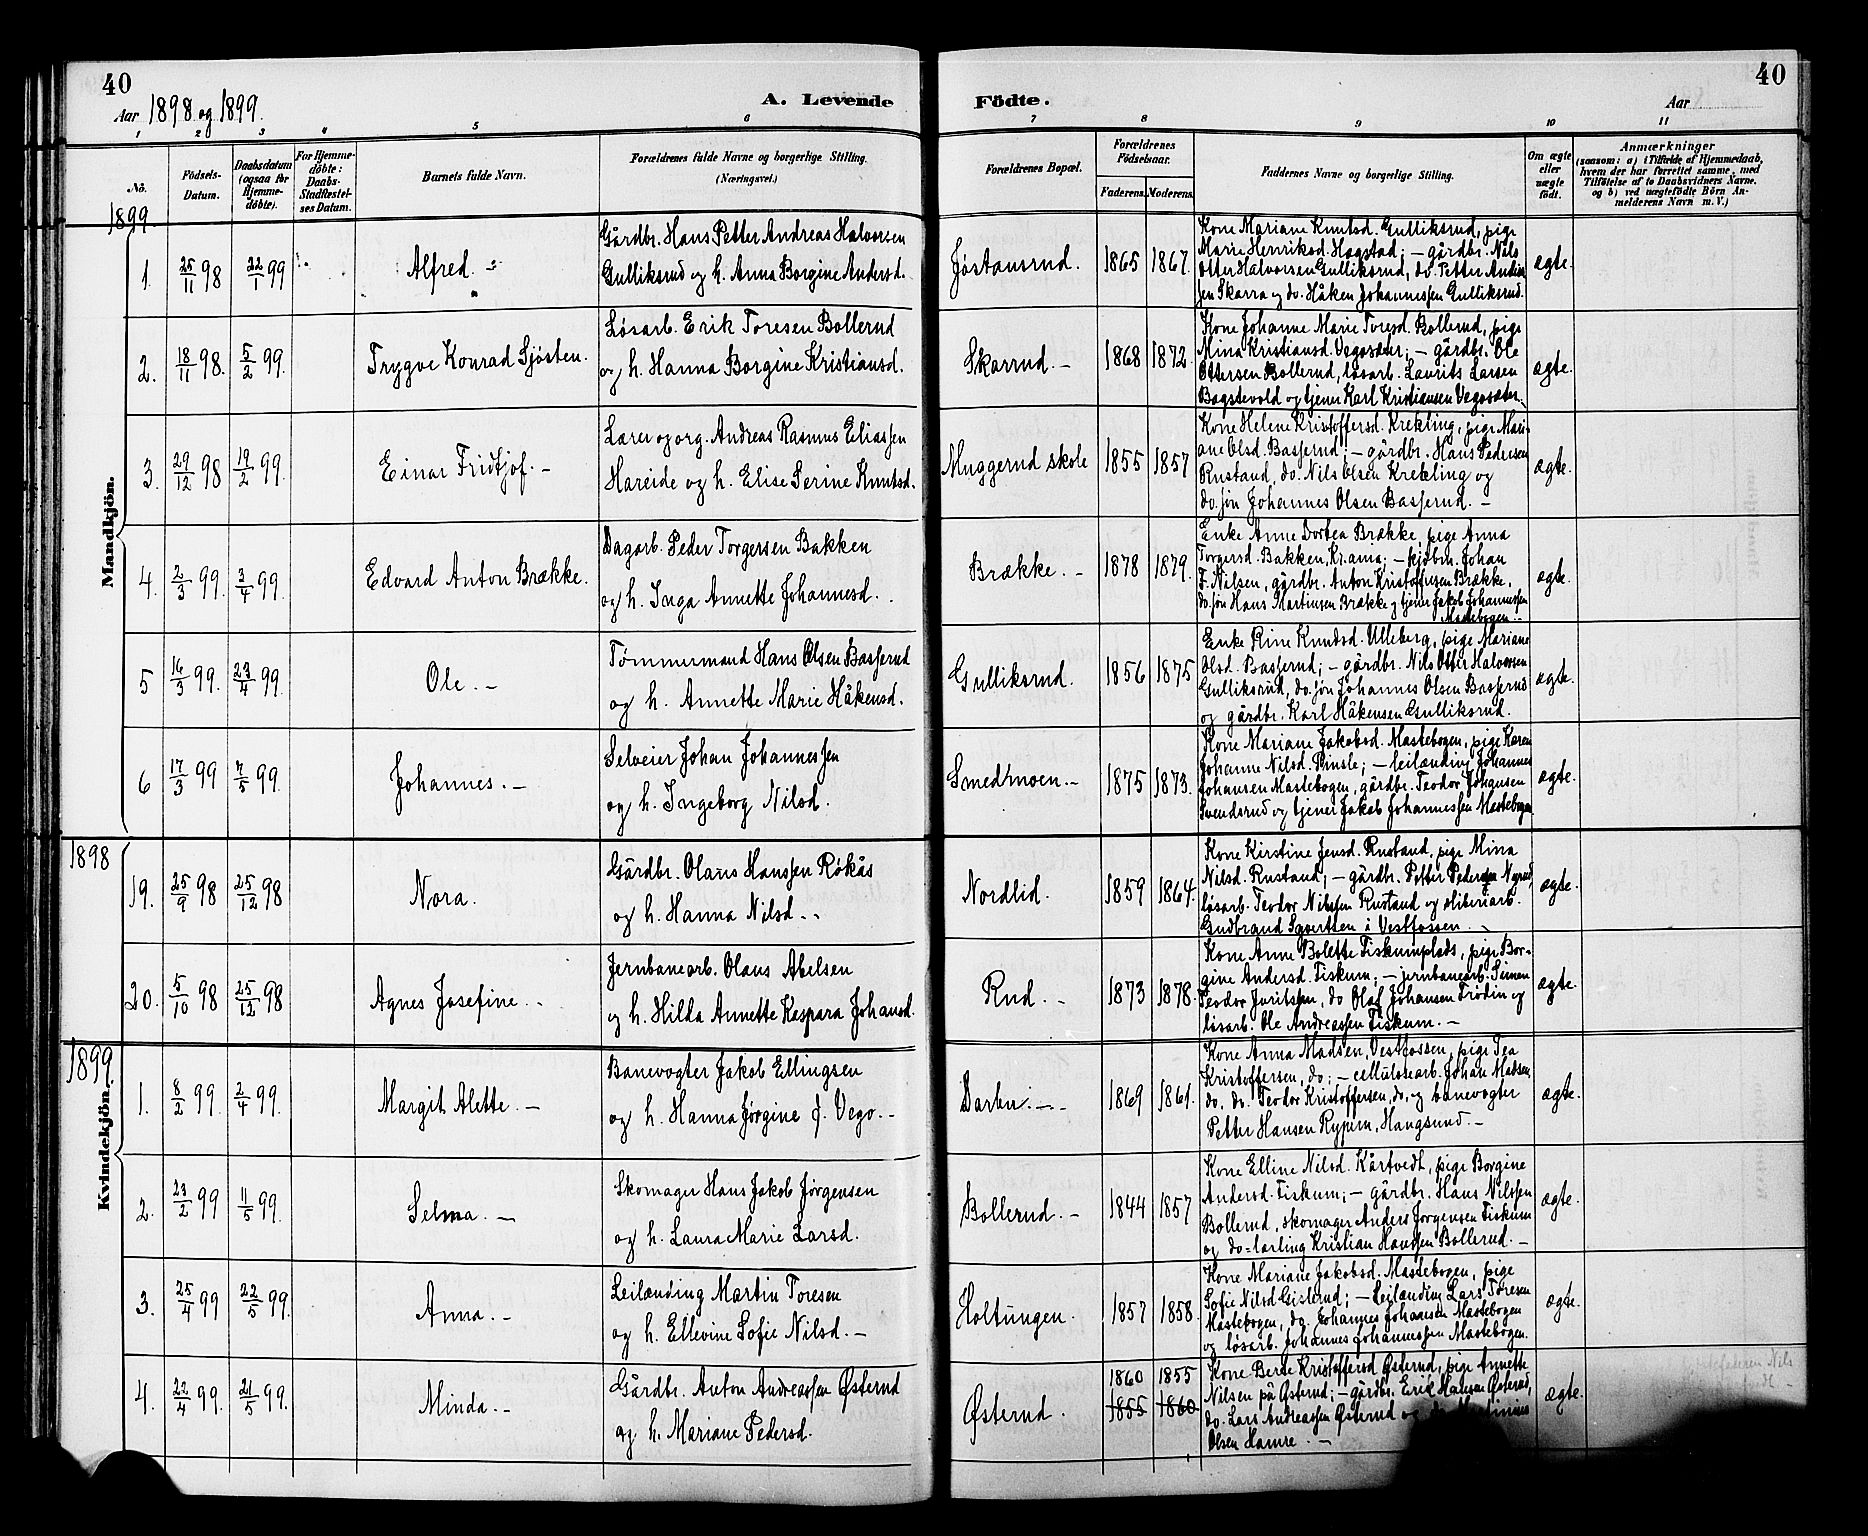 40
Aar 1898 og 1899.
A. Levende
Födte.
40
Aar
1 2 3 4 5 6 7 8 9 10 11
No.
Födsels-
Datum.
Daabsdatum
(ogsaa for
Hjemme-
döbte).
For Hjemme-
döbte:
Daabs-
Stadfæstel-
ses Datum.
Barnets fulde Navn.
Forældrenes fulde Navne og borgerlige Stilling.
(Næringsvei.)
Forældrenes Bopæl.
Forældrenes
Födselsaar.
Faderens.
Moderens.
Faddernes Navne og borgerlige Stilling.
Om ægte
eller
uægte
født.
Anmærkninger
(saasom: a) i Tilfælde af Hjemmedaab,
hvem der har forrettet samme, med
Tilföielse af to Daabsvidners Navne,
og b) ved uægtefödte Börn An-
melderens Navn m. V.)
Mandkjön.
1899.
1. 25/11 98 22/1 99 Alfred.
Gårdbr. Hans Petter Andreas Halvorsen
Gulliksrud og h. Anna Borgine Andersd.
Jøstansrud. 1865 1867.
Kone Mariane Knutsd. Gulliksrud, pige
Marie Henriksd. Hagstad; – gårdbr. Nils
Otter Halvorsen Gulliksrud, do. Petter Andrea
sen Skarra og do. Håken Johannessen Gulliksrud.
ægte.
2. 18/11 98. 5/2 99. Trygve Konrad Sjøsten.
Løsarb. Erik Toresen Bollerud
og h. Hanna Borgine Kristiansd.
Skarrud. – 1868 1872.
Kone Johanne Marie Toresd. Bollerud, pige
Mina Kristiansd. Vegosæter; – gårdbr. Ole
Ottersen Bollerud, løsarb. Laurits Larsen
Bagstevold og tjener Karl Kristiansen Vegosæter.
ægte.
3. 29/12 98 19/2 99. Einar Fridtjof. –
Lærer og org. Andreas Rasmus Eliassen
Hareide og h. Elise Serine Knutsd.
Muggerud skole 1855 1857
Kone Helene Kristoffersd. Krekling, pige Mari-
ane Olsd. Basserud; – gårdbr. Hans Pedersen
Rustand, do. Nils Olsen Krekling og
do. søn Johannes Olsen Basserud. –
ægte.
4. 2/3 99. 3/4 99. Edvard Anton Brække.
Dagarb. Peder Torgersen Bakken
og h. Inga Annette Johannesd.
Brække. – 1878 1879.
Enke Anne Dortea Brække, pige Anna
Torgersd. Bakken, Krania; – kjøbm. Johan
F. Nilsen, gårdbr. Anton Kristoffersen Brække,
do. søn Hans Martinsen Brække og tjener Jakob Johannessen
Mastebogen. –
ægte.
5 16/3 99. 23/4 99. Ole. –
Tømmermand Hans Olsen Basserud
og h. Annette Marie Håkensd.
Gulliksrud. 1856 1875
Enke Rine Knudsd. Ulleberg, pige Mariane
Olsd. Basserud; – gårdbr. Nils Otter Halvorsen
Gulliksrud, do. søn Johannes Olsen Basserud
og gårdbr. Karl Håkensen Gulliksrud.
ægte.
6 17/3 99 7/5 99. Johannes. –
Selveier Johan Johannessen
og h. Ingeborg Nilsd.
Smedmoen. – 1875 1873.
Kone Mariane Jakobsd. Mastebogen, pige Karen
Johanne Nilsd. Pinsle; – leilænding Johannes
Johansen Mastebogen, gårdbr. Teodor Johansen
Svendsrud og tjener Jakob Johannessen Mastebogen
ægte.
Kvindekjön.
1898
19. 25/9 98 25/12 98 Nora.
Gårdbr. Olaus Hanssen Røkås
og h. Hanna Nilsd. –
Nordlid. 1859 1864.
Kone Kirstine Jensd. Rustand, pige Mina
Nilsd. Rustand; – gårdbr. Petter Pedersen Nyrud,
løsarb. Teodor Nilssen Rustand og sliberiarb.
Gudbrand Syvertsen i Vestfossen. –
ægte.
20. 5/10 98 25/12 98 Agnes Josefine. –
Jernbanearb. Olaus Abelsen
og h. Hilda Annette Kaspara Johansd.
Rud. – 1873 1878.
Kone Anne Bolette Fiskumplads, pige Bor-
gine Andersd. Fiskum; – jernbanearb. Simen
Teodor Juritssen, do Olaf Johansen Frødin og
løsarb. Ole Andreassen Fiskum. –
ægte.
1899.
1. 8/2 99. 2/4 99. Margit Alette. –
Banevogter Jakob Ellingsen
og h. Hanna Jørgine f. Vego. –
Darbu. – 1869 1861.
Kone Anna Madsen, Vestfossen, pige Tea
Kristoffersen, do; – cellulosearb. Johan Madsen,
do, do. Teodor Kristoffersen, do, og banevogter
Petter Hansen Rypern, Hangsund. –
ægte.
2. 23/2 99 11/5 99. Selma. –
Skomager Hans Jakob Jørgensen
og h. Laura Marie Larsd.
Bollerud. – 1844 1857
Kone Elline Nilsd. Kårtvedt, pige Borgine
Andersd. Fiskum; – gårdbr. Hans Nilssen
Bollerud, skomager Anders Jørgensen Fiskum
og do=lærling Kristian Hanssen Bollerud. –
ægte.
3. 25/4 99 22/5 99. Anna. –
Leilænding Martin Toresen
og h. Ellevine Sofie Nilsd. –
Holtungen. 1857 1858.
Kone Mariane Jakobsd. Mastebogen, pige
Sofie Nilsd Gisterud; – Leilænding Lars Toresen
Mastebogen, do. Johannes Johansen Mastebogen
og løsarb. Johannes Johannessen Mastebogen.
ægte.
4. 22/4 99. 21/5 99. Minda. –
Gårdbr. Anton Andreassen Østerud
og h. Mariane Pedersd.
Østerud. 1860 1855
1855 1860
Kone Berte Kristoffersd Østerud, pige Annette
Nilsen på Østerud; – gårdbr. Erik Hansen Østerud,
do. Lars Andreassen Østerud og do Martinius
Olsen Hamre. –
ægte.
Nils